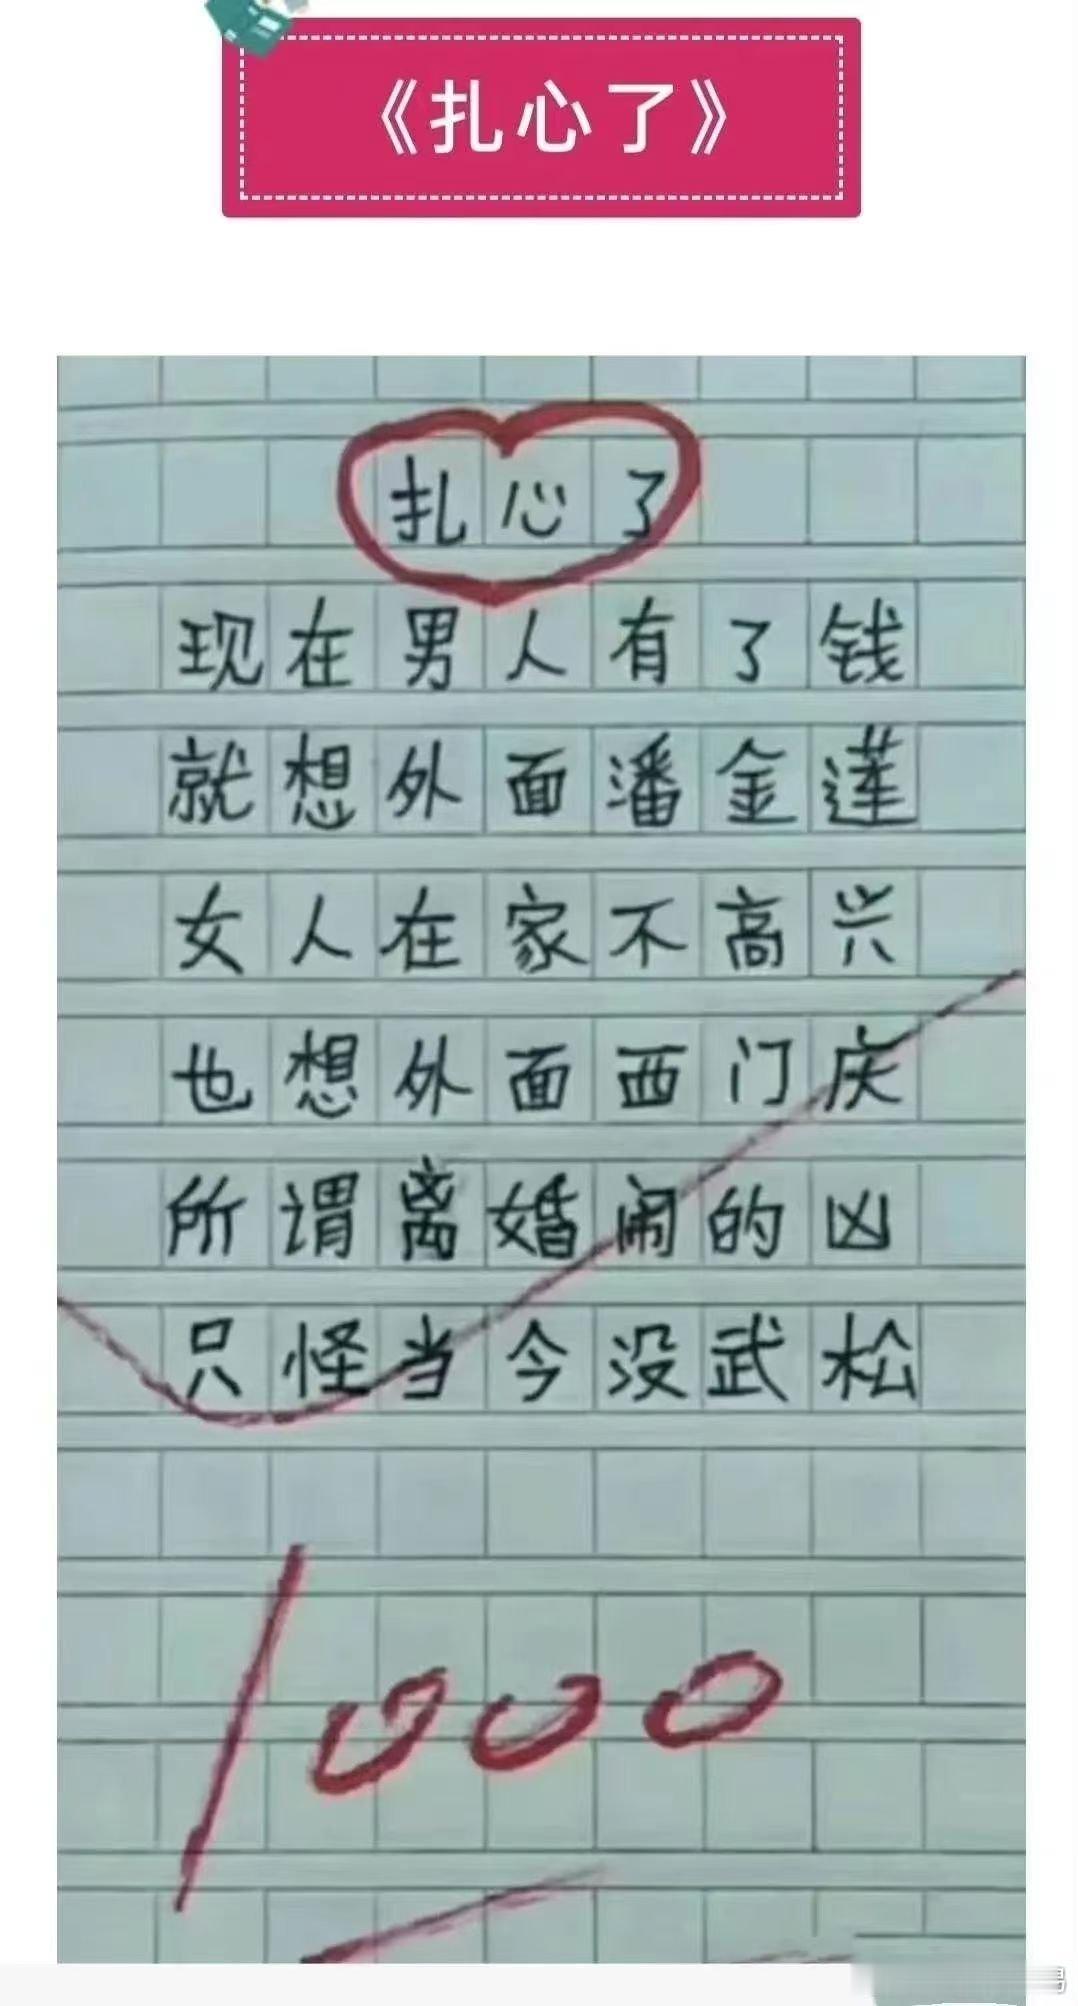 《扎心了》
扎心了
现在男人有了钱
就想外面潘金莲
女人在家不高兴
也想外面西门庆
所谓离婚闹的凶
只怪当今没武松
1000